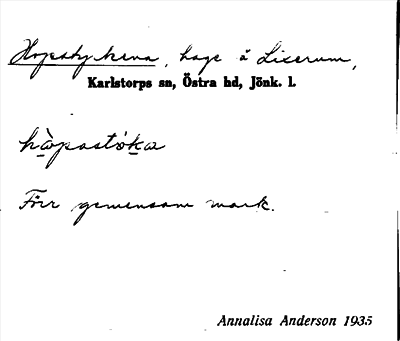 Hopstyckena, hage å Liserum,
Karlstorps sn, Östra hd, Jönk. l.
hòpastókα
Förr gemensam mark.
Annalisa Anderson 1935